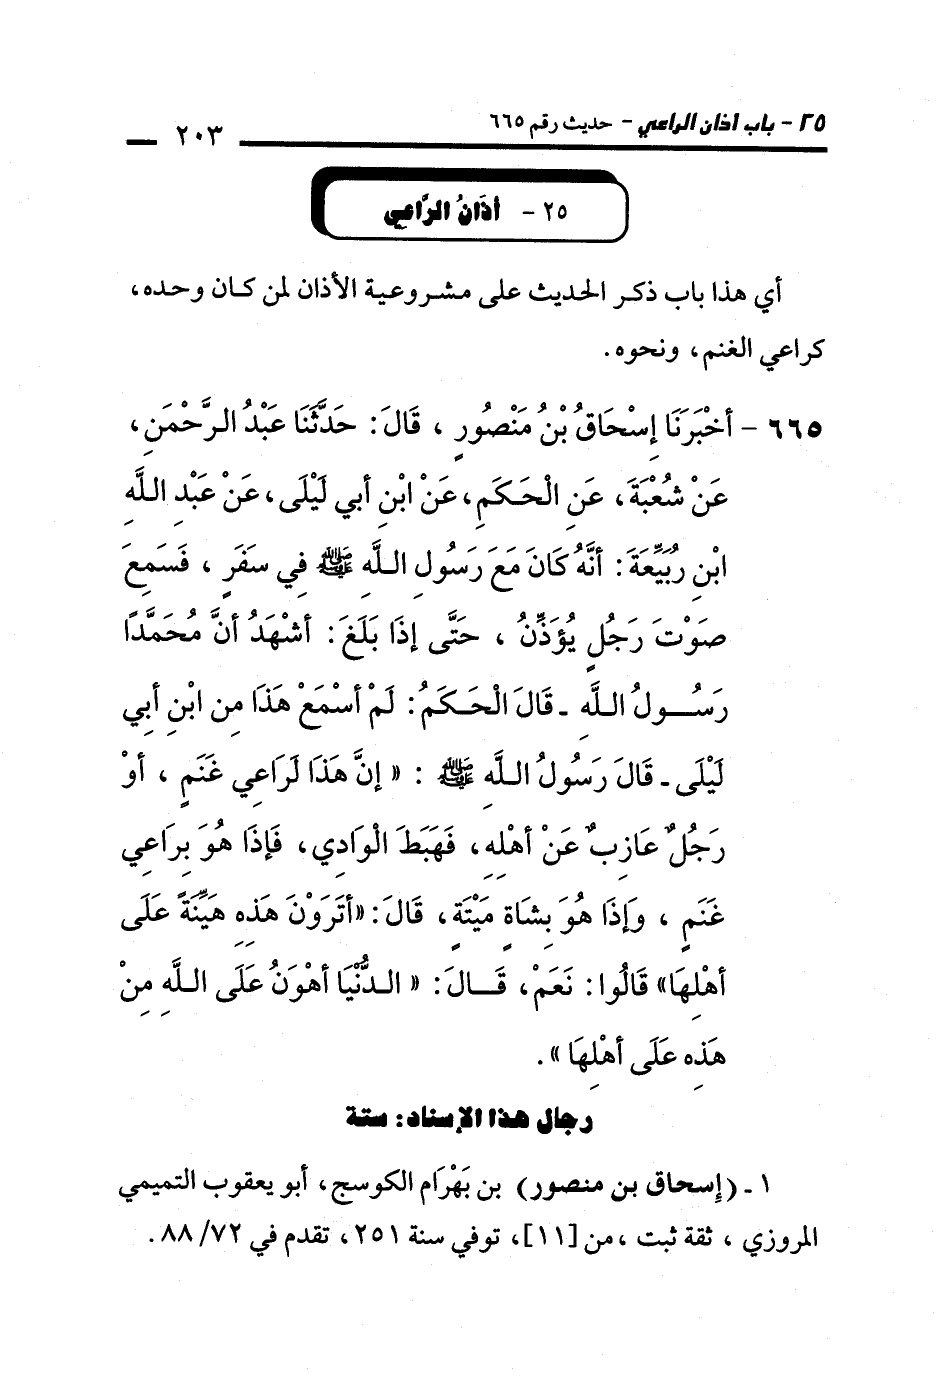 ٢٥ - باب أذان الراعي - حديث رقم ٦٦٥
٢٠٣
٢٥ - أَذَانُ الرَّاعِي
أي هذا باب ذكر الحديث على مشروعية الأذان لمن كان وحده،
كراعي الغنم، ونحوه.
٦٦٥ - أَخْبَرَنَا إِسْحَاقُ بْنُ مَنْصُورٍ ، قَالَ: حَدَّثَنَا عَبْدُ الرَّحْمَنِ،
عَنْ شُعْبَةَ، عَنِ الْحَكَمِ، عَنْ ابْنِ أَبِي لَيْلَى، عَنْ عَبْدِ اللَّهِ
ابْنِ رُبَيِّعَةَ: أَنَّهُ كَانَ مَعَ رَسُولِ اللَّهِ ﷺ فِي سَفَرٍ ، فَسَمِعَ
صَوْتَ رَجُلٍ يُؤَذِّنُ ، حَتَّى إِذَا بَلَغَ: أَشْهَدُ أَنَّ مُحَمَّدًا
رَسُولُ اللَّهِ ـ قَالَ الْحَكَمُ: لَمْ أَسْمَعْ هَذَا مِنِ ابْنِ أَبِي
لَيْلَى ـ قَالَ رَسُولُ اللَّهِ ﷺ : « إِنَّ هَذَا لَرَاعِي غَنَمٍ ، أَوْ
رَجُلٌ عَازِبٌ عَنْ أَهْلِهِ، فَهَبَطَ الْوَادِي، فَإِذَا هُوَ بِرَاعِي
غَنَمٍ ، وَإِذَا هُوَ بِشَاةٍ مَيْتَةٍ، قَالَ: «أَتَرَوْنَ هَذِهِ هَيِّنَةً عَلَى
أَهْلِهَا» قَالُوا: نَعَمْ، قَالَ: « الدُّنْيَا أَهْوَنُ عَلَى اللَّهِ مِنْ
هَذِهِ عَلَى أَهْلِهَا ».
رجال هذا الإسناد: ستة
١ ـ (إسحاق بن منصور) بن بَهْرَام الكوسج، أبو يعقوب التميمي
المروزي ، ثقة ثبت ،من [١١]، توفي سنة ٢٥١، تقدم في ٨٨/٧٢.